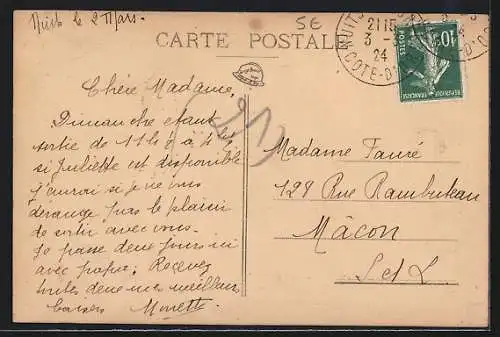 Nuits le 2 Mars.
5E
CARTE POSTALE
NUITS
21 15
3
24
COTE-D'OR
10c
POSTES
REPUBLIQUE FRANCAISE
Chère Madame,
Dimanche étant
sortie de 11h½ à 4h½
si Juliette est disponible
j'aurai si je ne vous
dérange pas le plaisir
de sortir avec vous.
Je passe deux jours ici
avec papa. Recevez
toutes deux mes meilleurs
baisers
Madame Fauré
128 Rue Rambuteau
Mâcon
S et L